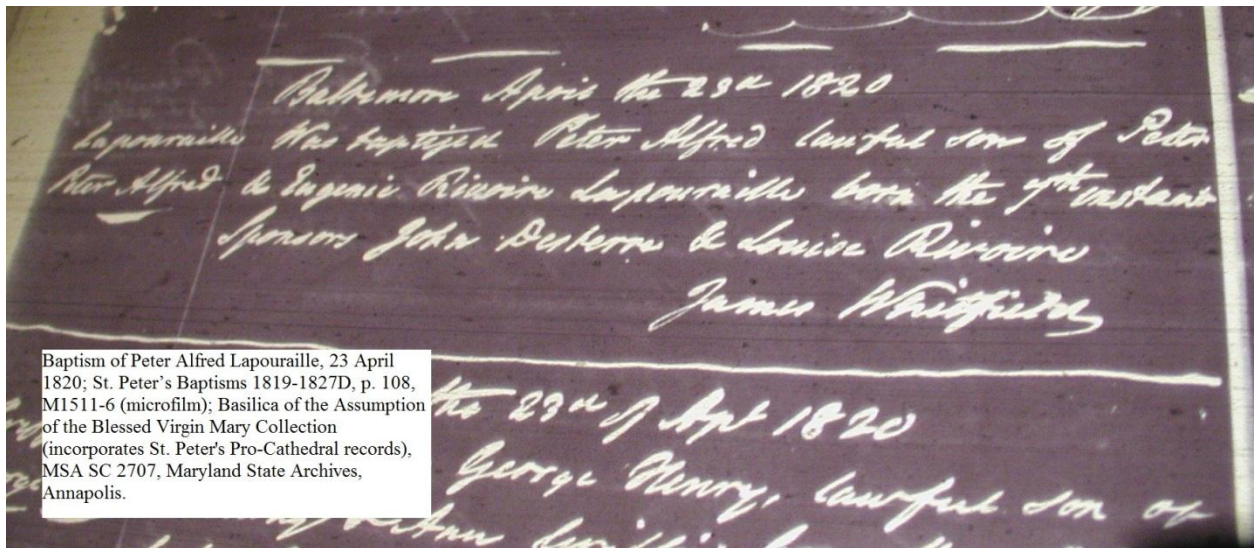 Baltimore April the 23d 1820
Lapouraille Was baptised Peter Alfred lawful son of Peter
Peter Alfred & Eugenie Rivoire Lapouraille born the 7th instant
Sponsors John Desterne & Louise Rivoire
James Whitfield
Baptism of Peter Alfred Lapouraille, 23 April
1820; St. Peter’s Baptisms 1819-1827D, p. 108,
M1511-6 (microfilm); Basilica of the Assumption
of the Blessed Virgin Mary Collection
(incorporates St. Peter's Pro-Cathedral records),
MSA SC 2707, Maryland State Archives,
Annapolis.
the 23d of Apl 1820
George Henry, lawful son of
& Ann